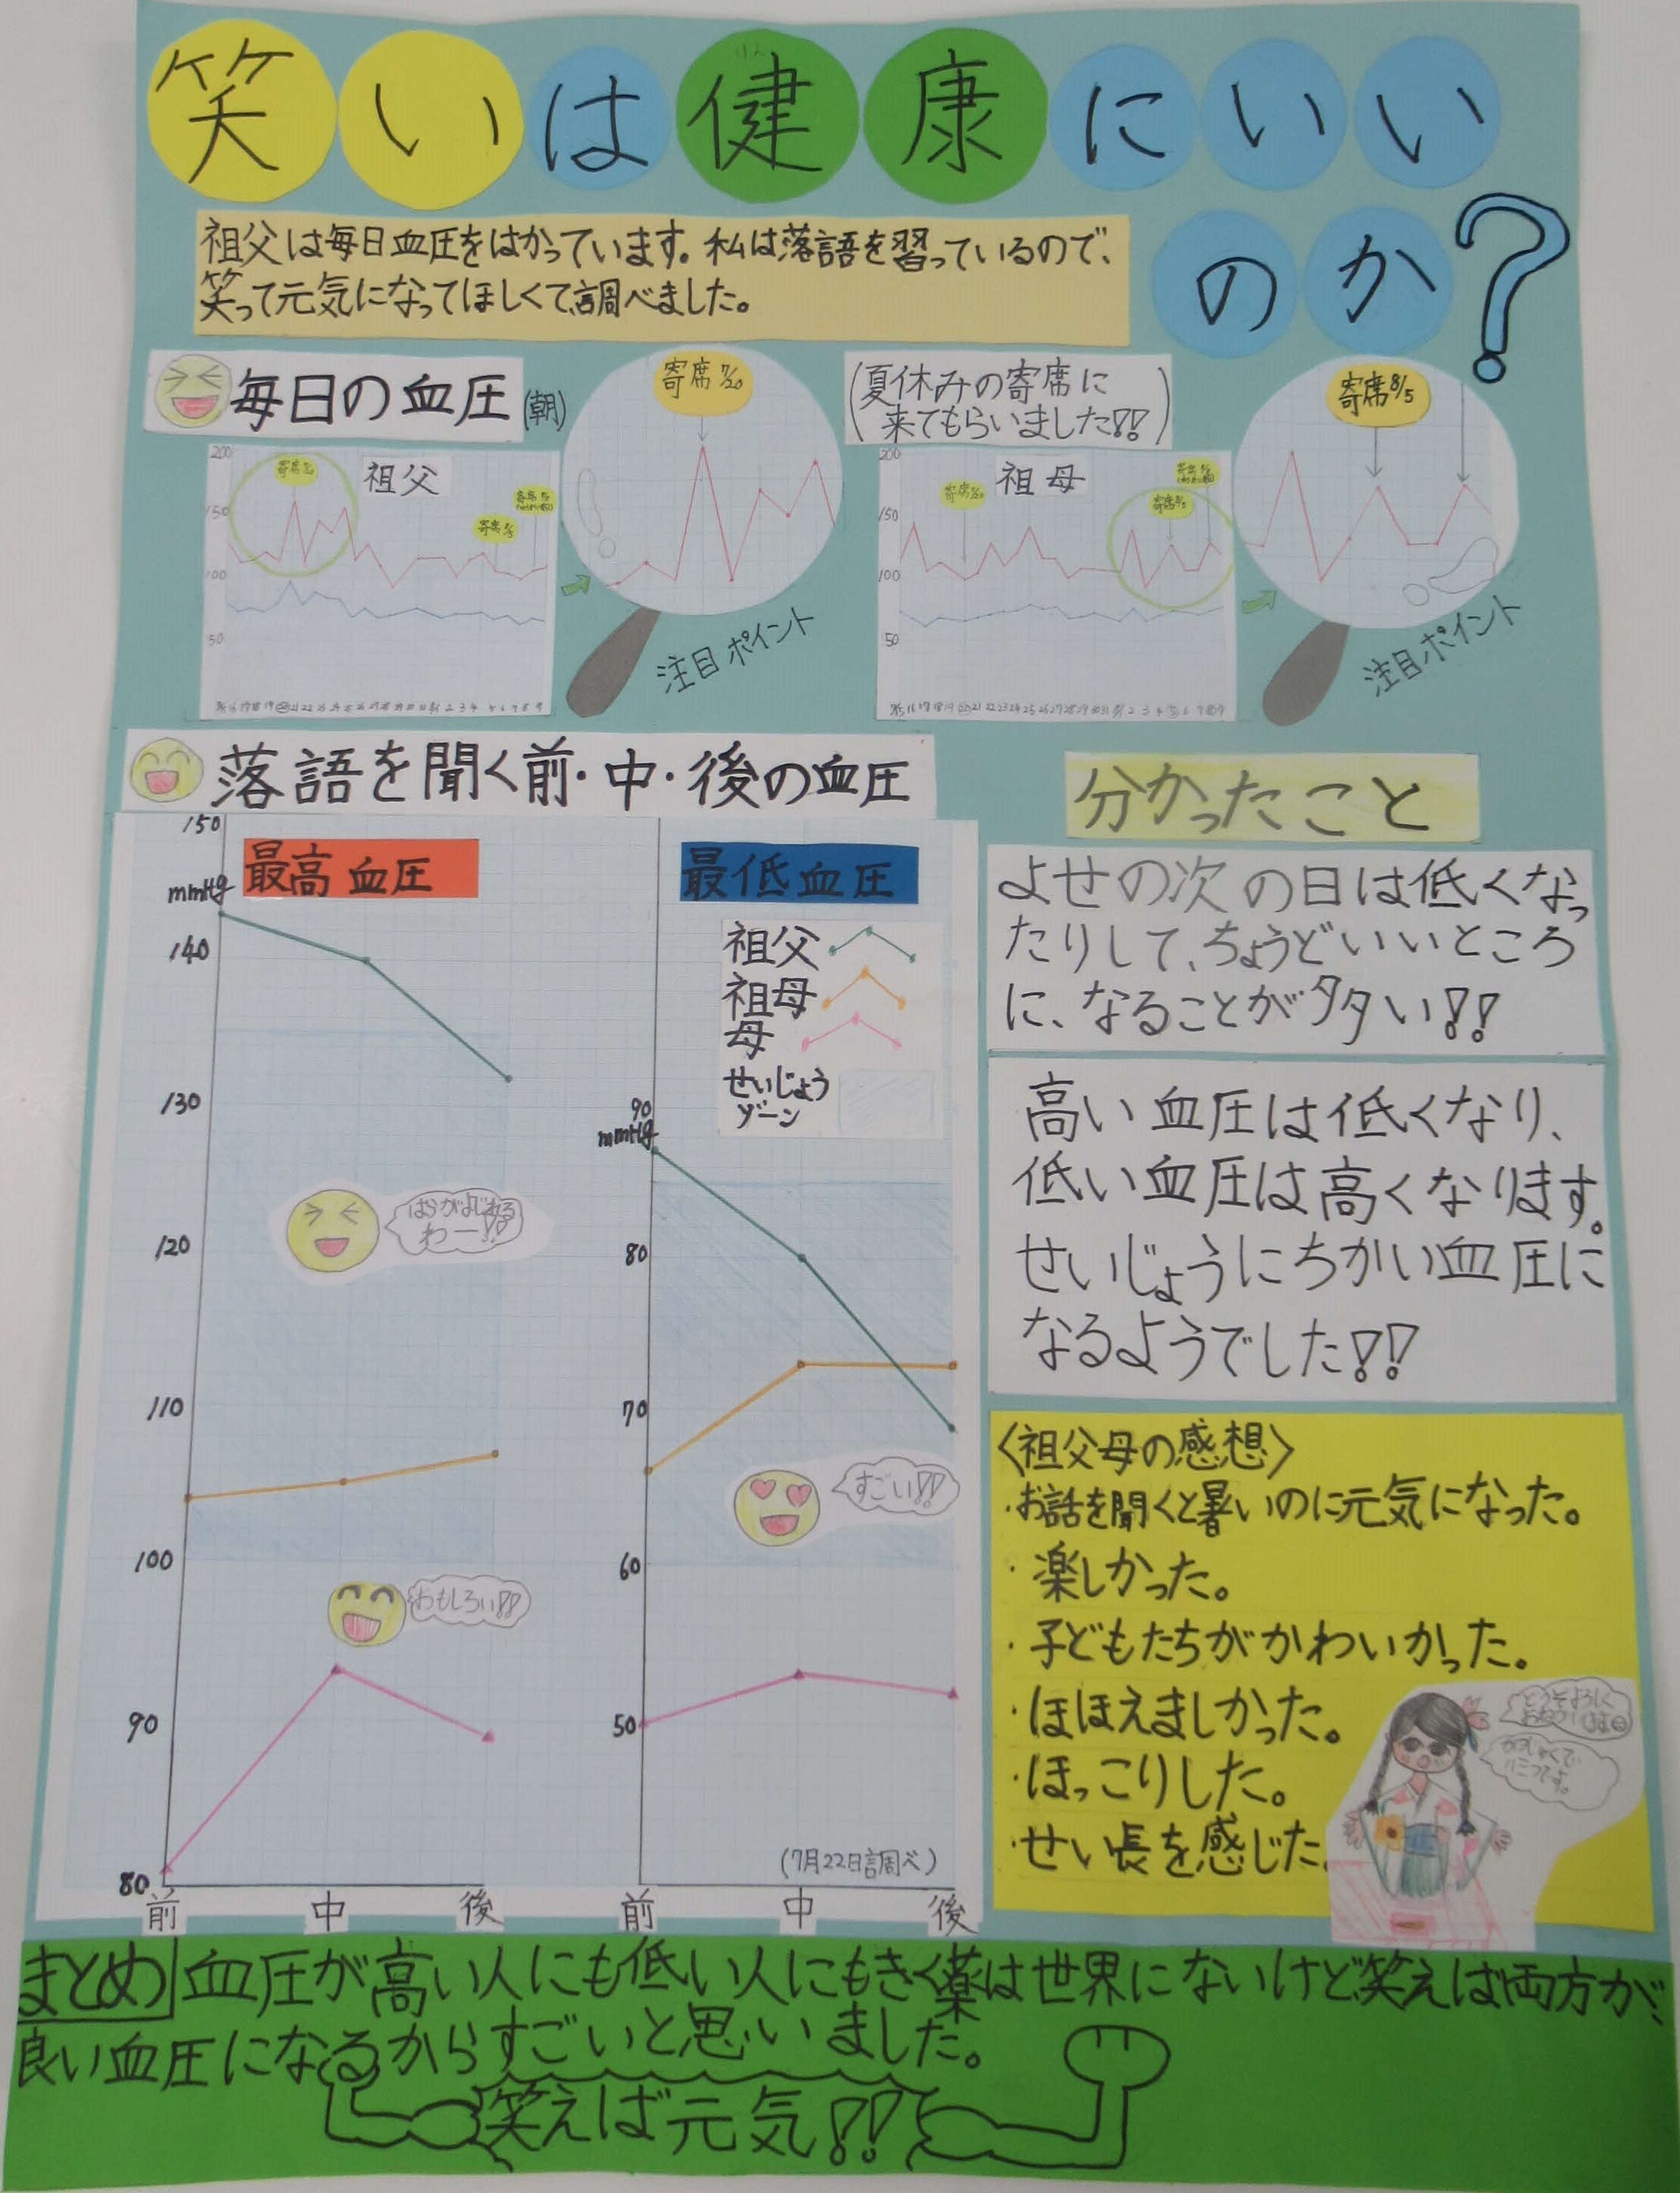 笑いは健康にいい
のか?
祖父は毎日血圧をはかっています。私は落語を習っているので、
笑って元気になってほしくて、調べました。
毎日の血圧(朝)
寄席7/20
(夏休みの寄席に
来てもらいました!!)
寄席8/5
200
祖父
150
100
50
寄席8/5
注目ポイント
200
祖母
150
100
50
寄席7/20
寄席8/5
注目ポイント
落語を聞く前・中・後の血圧
最高血圧
150
mmHg
140
130
120
110
100
90
80
前
中
後
はらがよじれる
わー!!
おもしろい!!
最低血圧
祖父
祖母
母
せいじょう
ゾーン
90
mmHg
80
70
60
50
前
中
後
すごい!!
(7月22日調べ)
分かったこと
よせの次の日は低くなっ
たりして、ちょうどいいところ
に、なることが多い!!
高い血圧は低くなり、
低い血圧は高くなります。
せいじょうにちかい血圧に
なるようでした!!
〈祖父母の感想〉
・お話を聞くと暑いのに元気になった。
・楽しかった。
・子どもたちがかわいかった。
・ほほえましかった。
・ほっこりした。
・せい長を感じた。
どうぞよろしく
おねがいします
まとめ 血圧が高い人にも低い人にもきく薬は世界にないけど、笑えば両方が、
良い血圧になるからすごいと思いました。
笑えば元気!!